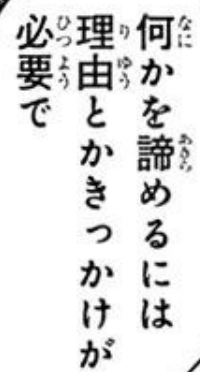 何かを諦めるには
理由とかきっかけが
必要で